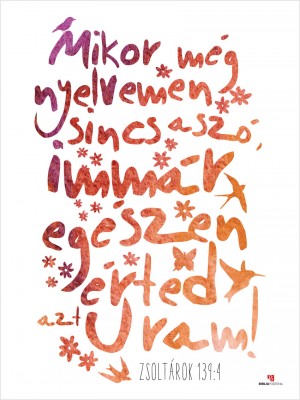 Mikor még
nyelvemen
sincs a szó,
immár
egészen
érted
azt Uram!
ZSOLTÁROK 139:4